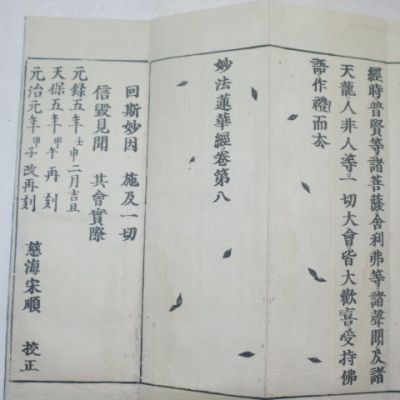 經時普賢等諸菩薩舍利弗等諸聲聞及諸
天龍人非人等一切大會皆大歡喜受持佛
語作禮而去
妙法蓮華經卷第八
回斯妙因　施及一切
信毀見聞　共會實際
元錄五年壬申二月吉旦
天保五年甲午再刻
元治元年甲子改再刻
慈海宋順　校正